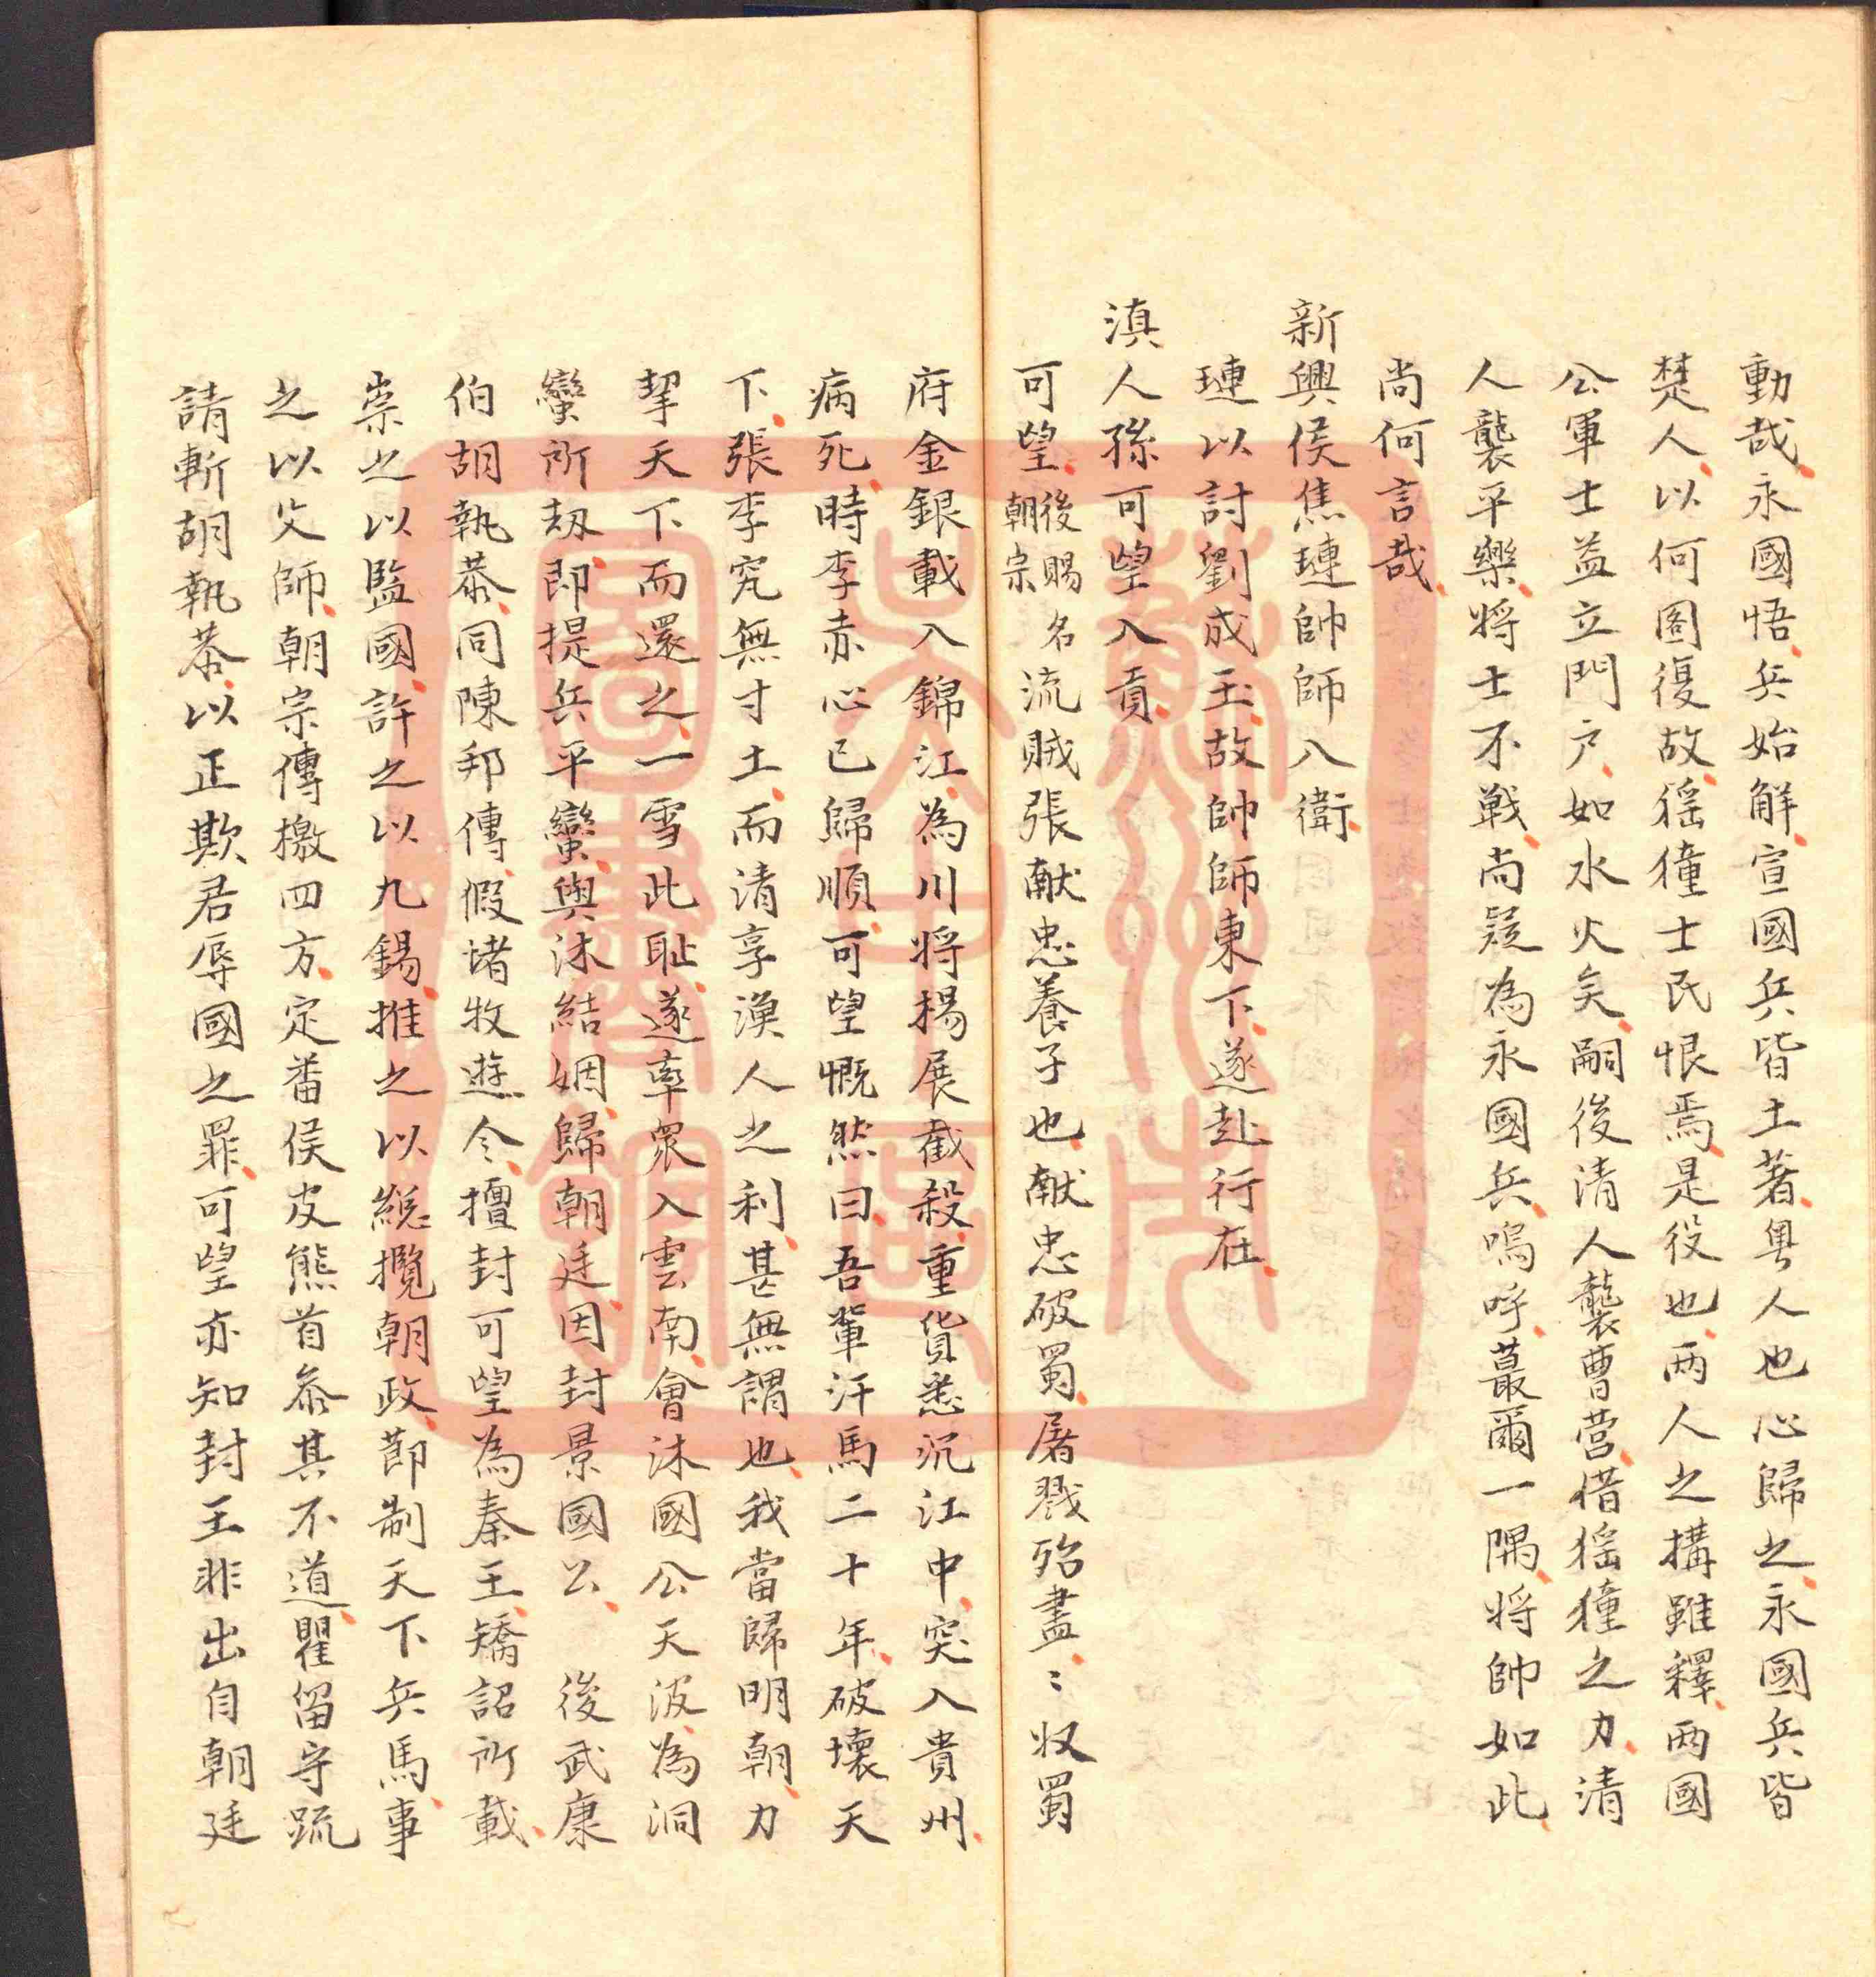 動哉永國悟兵始解宣國兵皆土著粵人也心歸之永國兵皆
楚人以何圖復故猺獞士民恨焉是役也兩人之搆雖釋兩國
公軍士益立門戶如水火矣嗣後清人襲曹营借猺獞之力清
人襲平樂将士不戦尚疑為永國兵嗚呼蕞爾一隅将帥如此
尚何言哉
新興侯焦璉帥師入衛
璉以討劉成玉故帥師東下遂赴行在
滇人孫可望入貢
可望後賜名朝宗流賊張献忠養子也献忠破蜀屠戮殆盡〻收蜀
府金銀載入錦江為川将楊展截殺重貨悉沉江中突入貴州
病死時李赤心已歸順可望慨然曰吾輩汗馬二十年破壞天
下張李究無寸土而清享漁人之利甚無謂也我當歸明朝力
挈天下而還之一雪此耻遂率衆入雲南會沐國公天波為洞
蠻所刼即提兵平蠻與沐結姻歸朝廷因封景國公 後武康
伯胡執恭同陳邦傳假堵牧遊令擅封可望為秦王矯詔所載
崇之以監國許之以九錫推之以総攬朝政莭制天下兵馬事
之以父師朝宗傳檄四方定番侯皮熊首叅其不道瞿留守疏
請斬胡執恭以正欺君辱國之罪可望亦知封王非出自朝廷